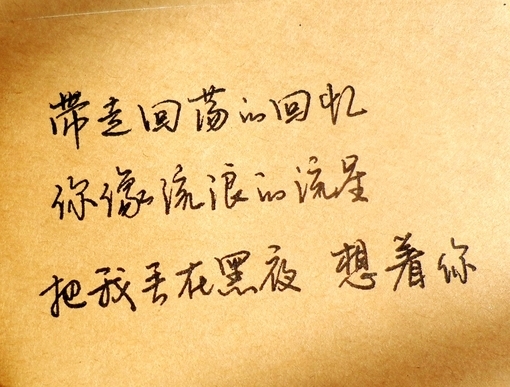 带走回荡的回忆
你像流浪的流星
把我丢在黑夜 想着你